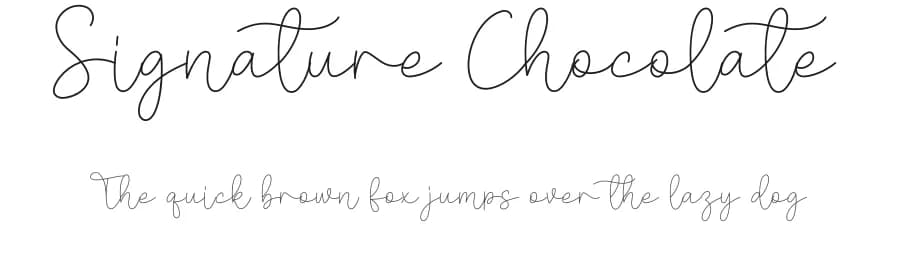 Signature Chocolate
The quick brown fox jumps over the lazy dog